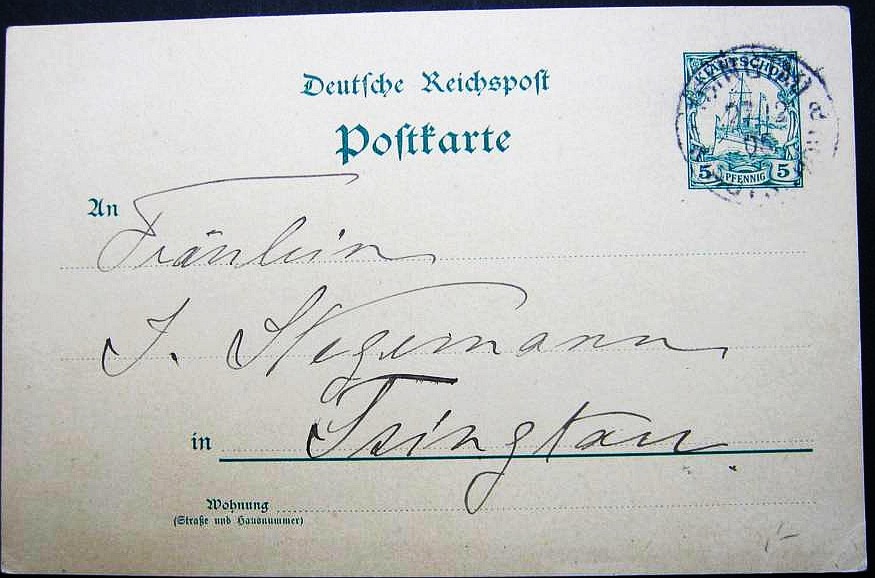 Deutsche Reichspost
Postkarte
KIAUTSCHOU
27 12
05
5 PFENNIG 5
An
Fräulein
J. Stegemann
in Tsingtau
Wohnung
(Straße und Hausnummer)